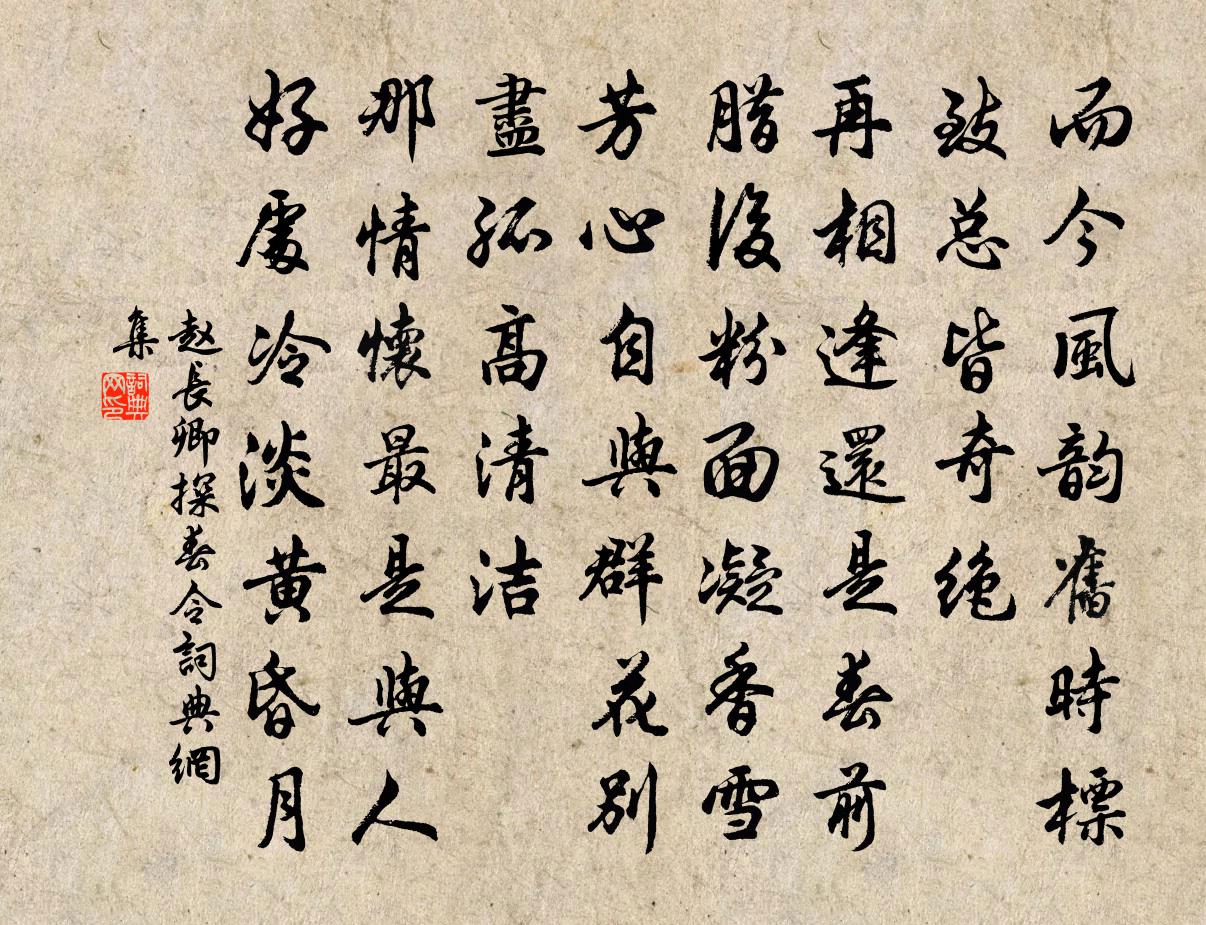 而今風韵舊時標
致总皆奇绝
再相逢還是春前
腊後粉面凝香雪
芳心自與群花別
盡孤高清洁
那情懷最是與人
好處冷淡黄昏月
赵長卿探春令詞典網
集
詞典網印